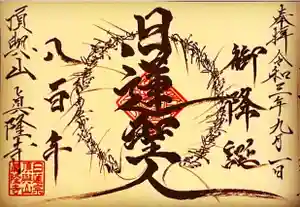 奉拝 令和三年九月一日
御降誕
日蓮聖人
八百年
頂照山 真隆寺